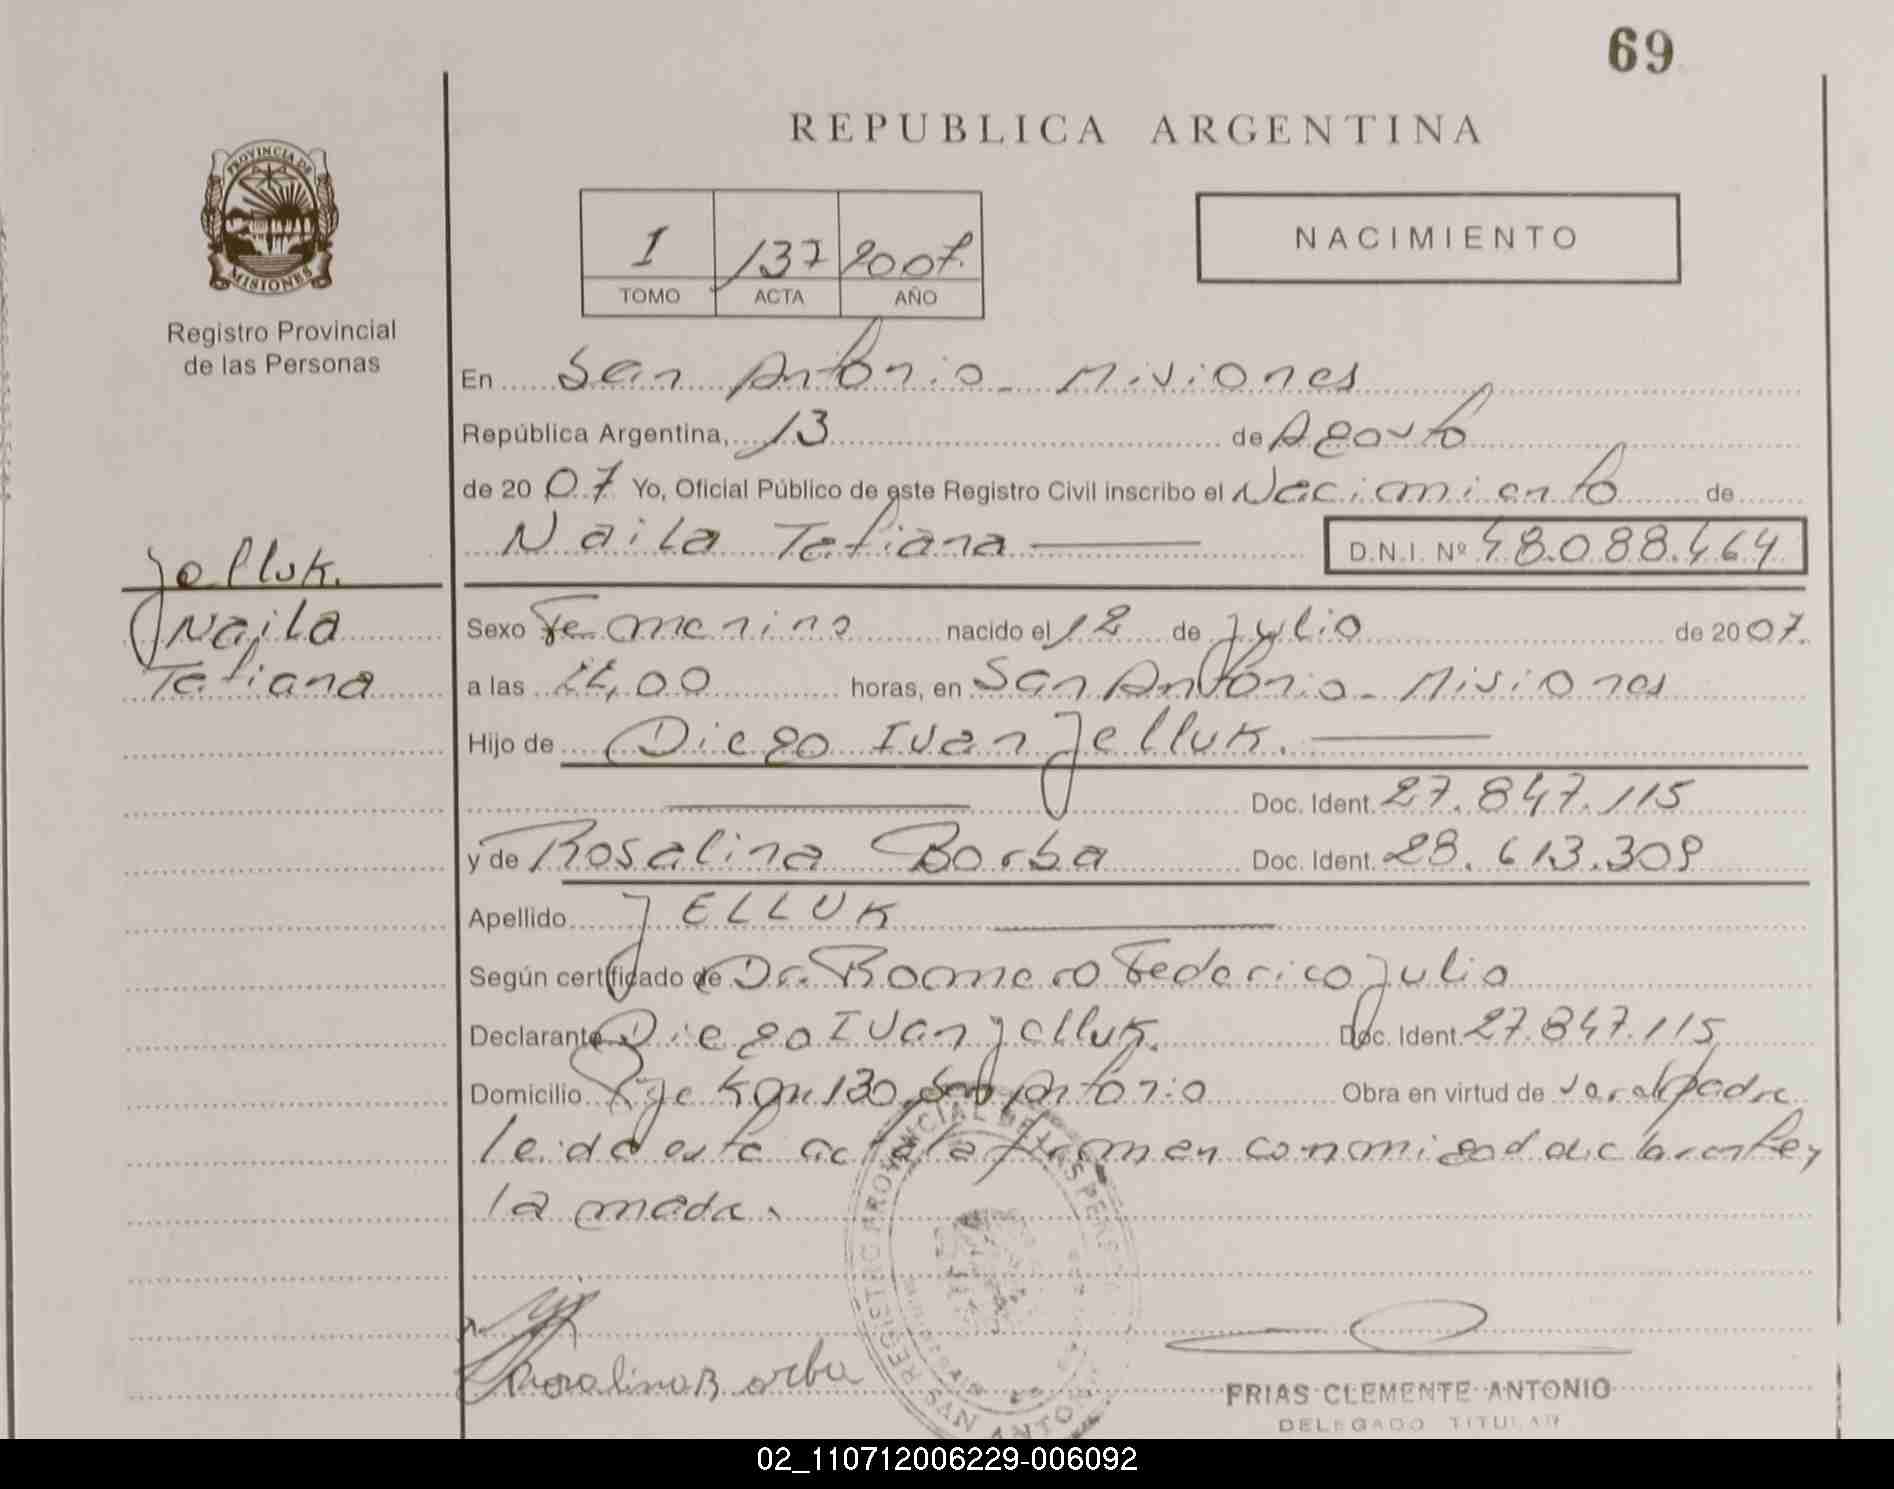 69
REPUBLICA ARGENTINA
PROVINCIA DE
MISIONES
Registro Provincial
de las Personas
I 137 2007.
TOMO ACTA AÑO
NACIMIENTO
En San Antonio - Misiones
República Argentina, 13 de Agosto
de 20 07 Yo, Oficial Público de este Registro Civil inscribo el Nacimiento de
Naila Tatiana
D.N.I. Nº 48.088.464
Jelluk.
Naila
Tatiana
Sexo Femenino nacido el 12 de Julio de 2007.
a las 22,00 horas, en San Antonio - Misiones
Hijo de Diego Ivan Jelluk.
Doc. Ident. 27.847.115
y de Rosalina Borba Doc. Ident. 28.613.309
Apellido JELLUK
Según certificado de Dr. Romero Federico Julio
Declarante Diego Ivan Jelluk. Doc. Ident. 27.847.115
Domicilio Pje Km 130 San Antonio Obra en virtud de ser el padre
leida esta acta la firman conmigo el declarante y
la madre.
REGISTRO PROVINCIAL DE LAS PERSONAS
SAN ANTONIO
Rosalina Borba
FRIAS CLEMENTE ANTONIO
DELEGADO TITULAR
02_110712006229-006092